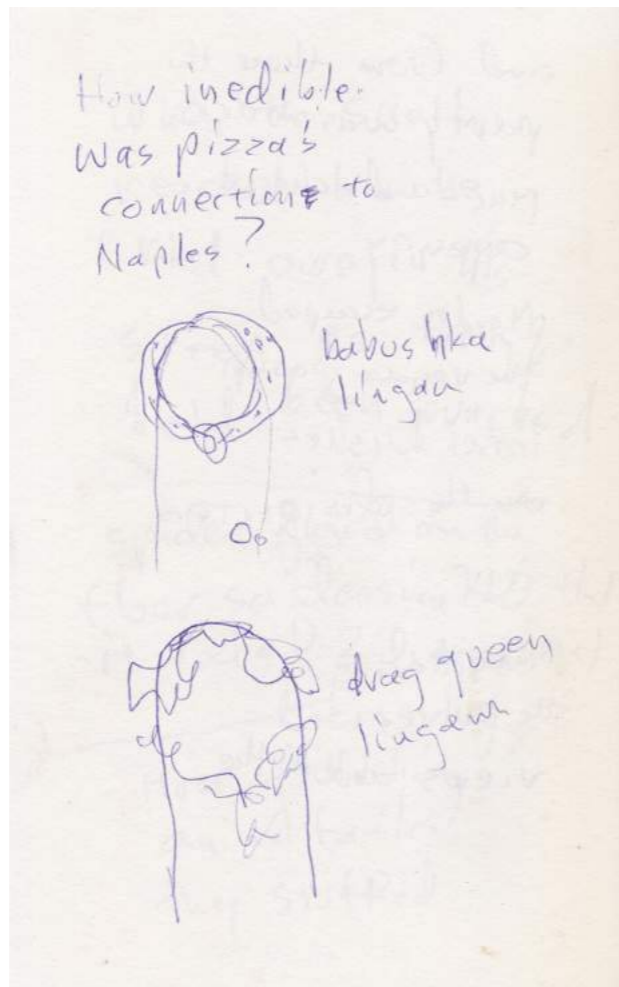 How inedible
was pizza's
connection to
Naples?
babushka
lingam
drag queen
lingam